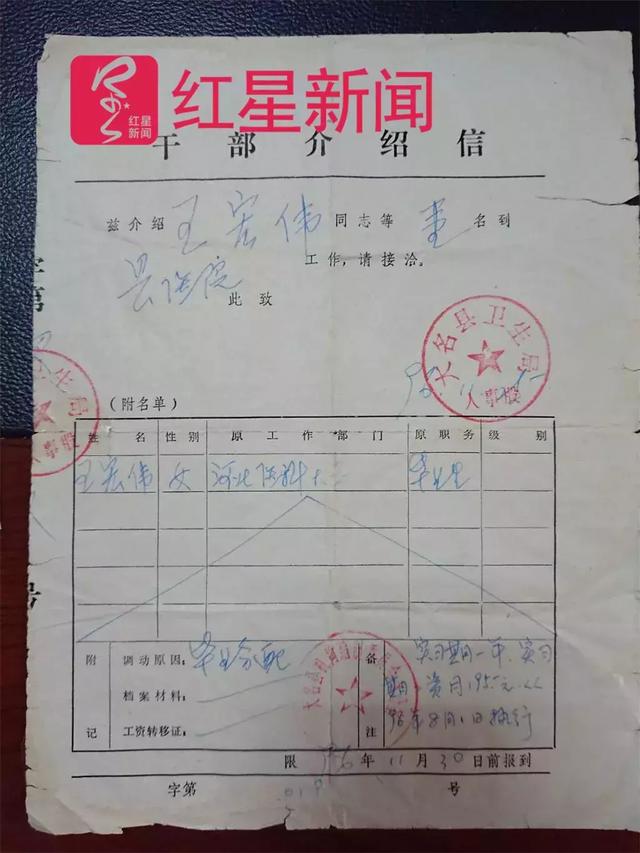 红星新闻
红星
新闻
干部介绍信
兹介绍 王宏伟 同志等 壹 名到
县医院 工作,请接洽。
此致
大名县卫生局
人事股
卫生局
事股
(附名单)
姓名 性别 原工作部门 原职务 级别
王宏伟 女 河北医科大 毕业生
附记
调动原因: 毕业分配
档案材料:
工资转移证:
备注
实习期一年、实习
期 资 195元
96年8月1日执行
限 96年11月30日前报到
字第 019 号